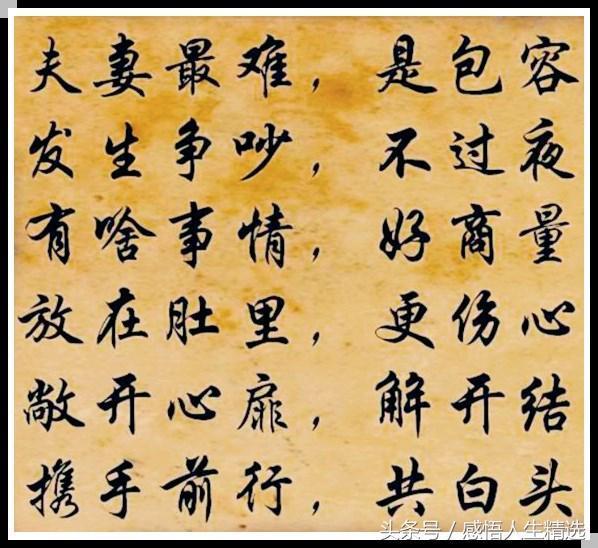 夫妻最难，是包容
发生争吵，不过夜
有啥事情，好商量
放在肚里，更伤心
敞开心扉，解开结
携手前行，共白头
头条号/感悟人生精选